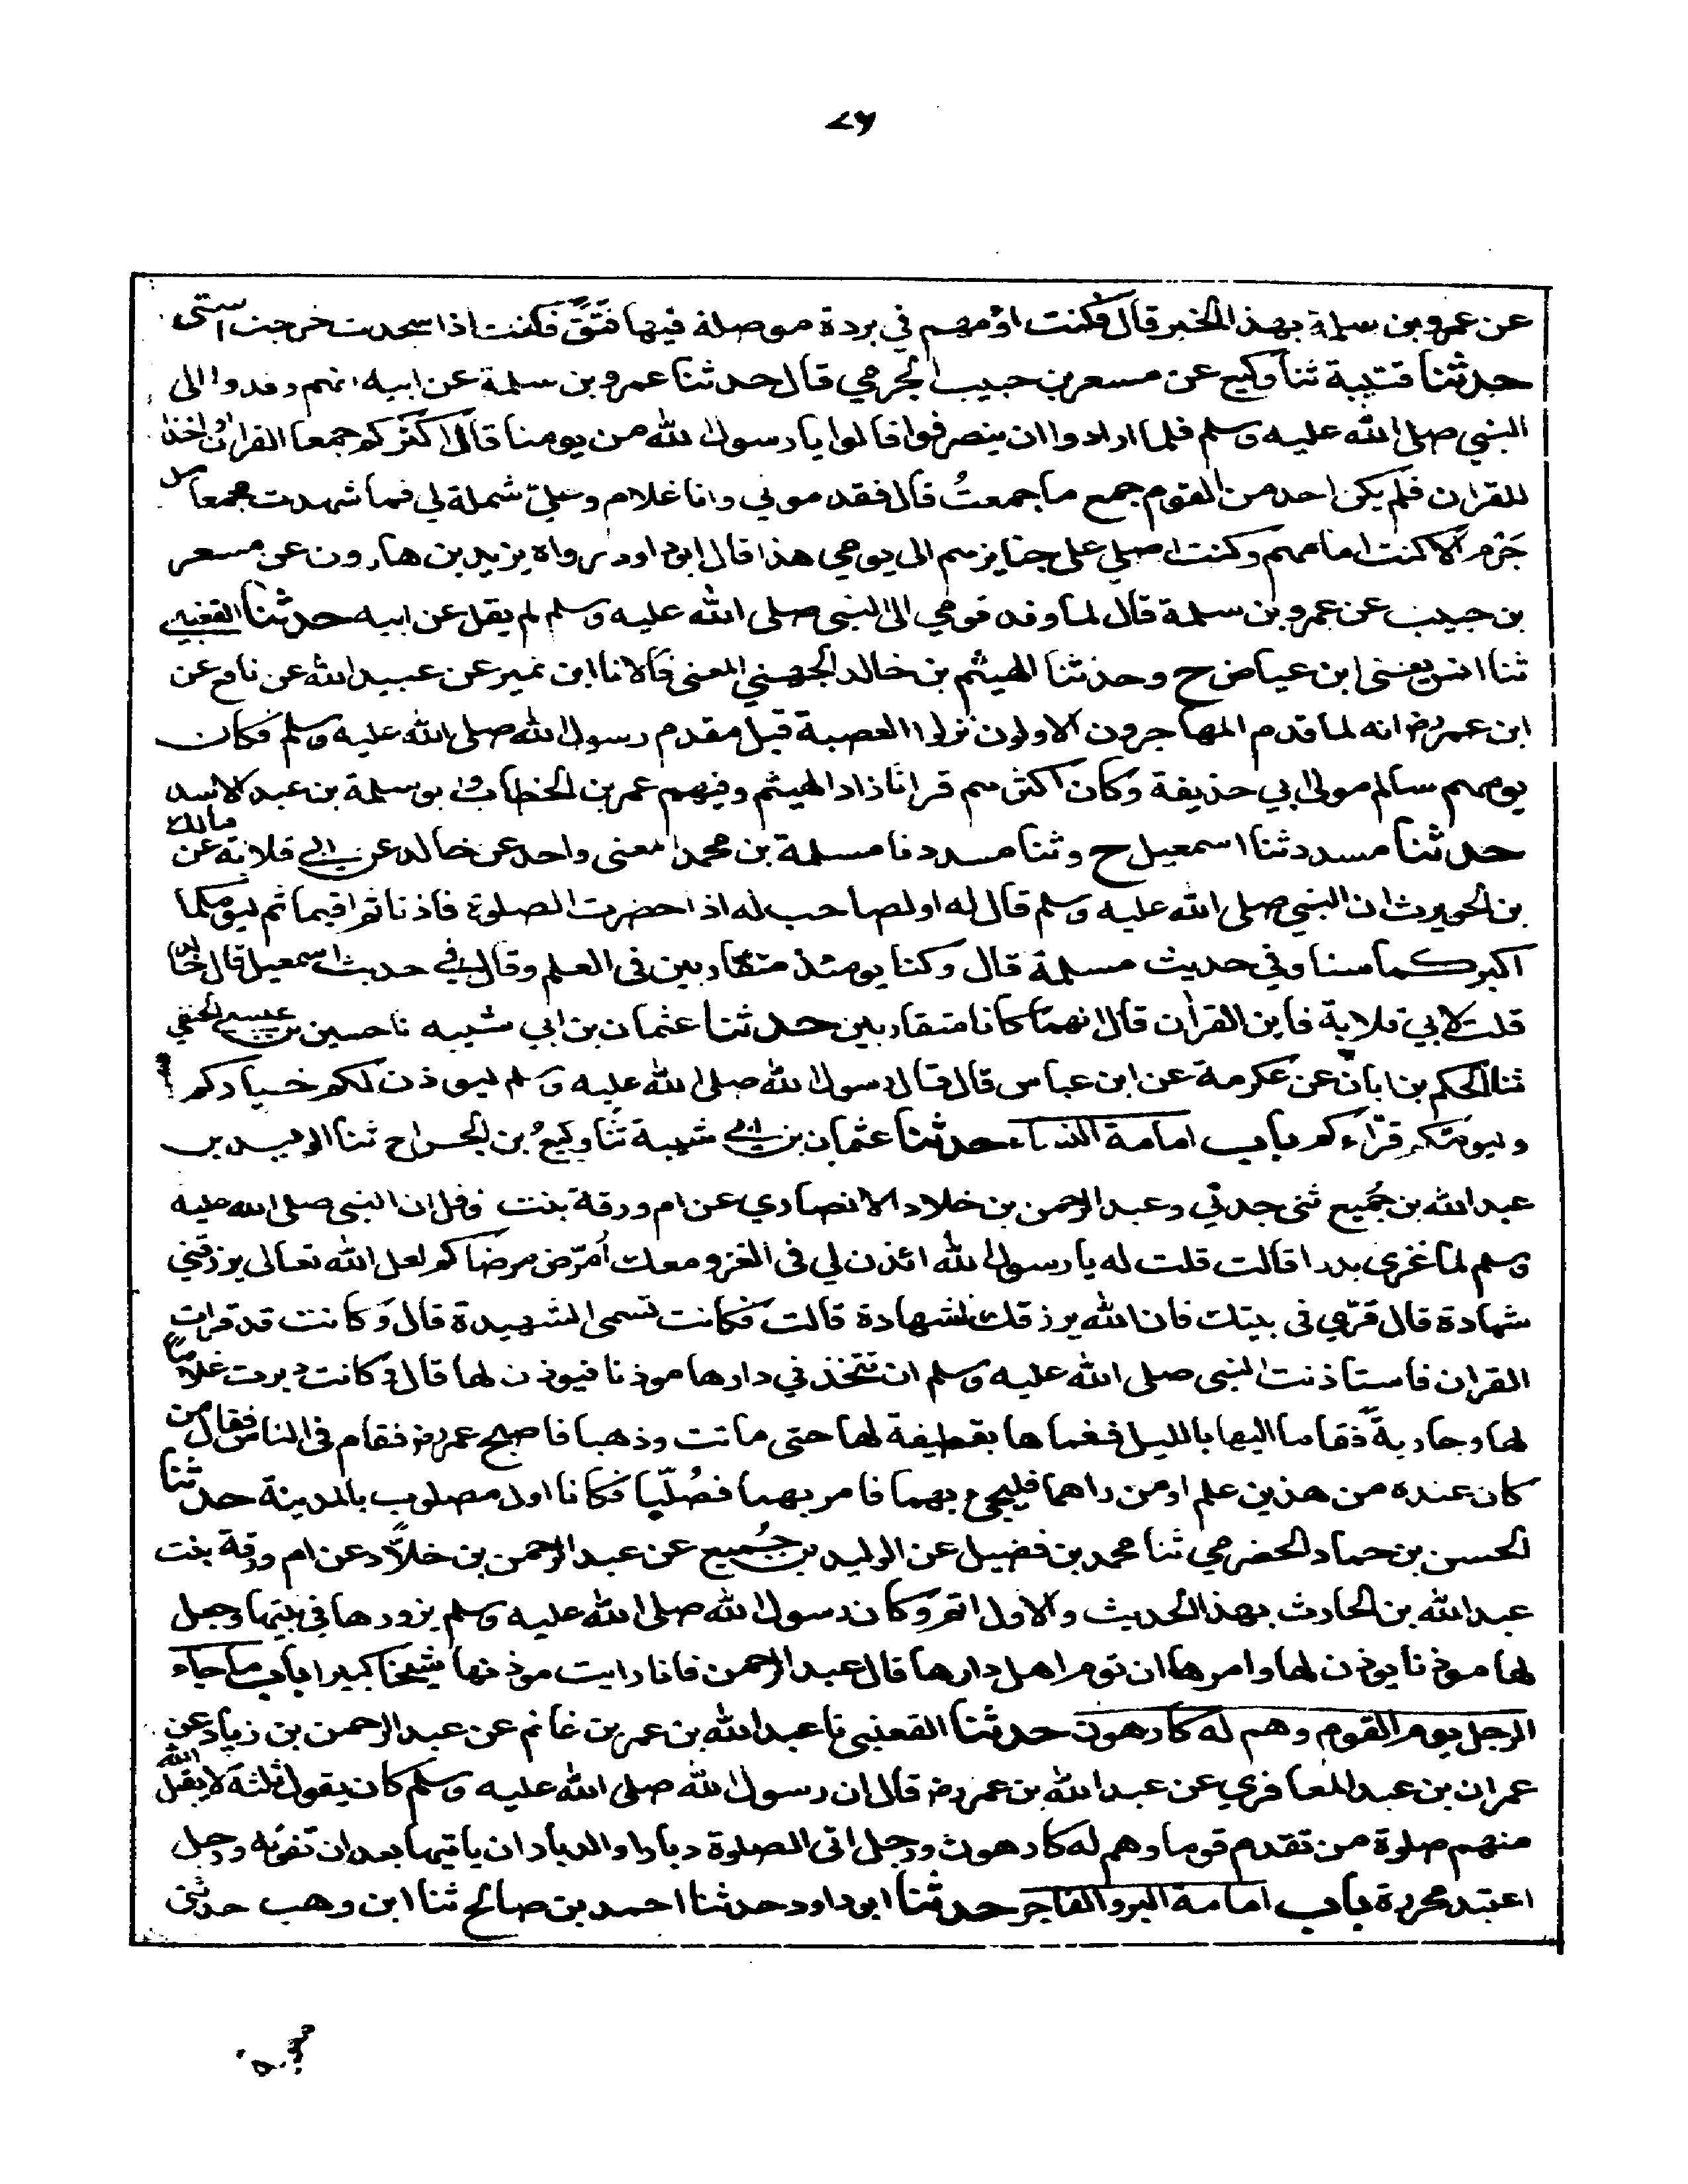 ٧٦
عن عمرو بن سلمة بهذا الخبر قال فكنت اؤمهم في بردة موصلة فيها فتق فكنت اذا سجدت خرجت استى
حدثنا قتيبة ثنا وكيع عن مسعر بن حبيب الجرمي قال حدثنا عمرو بن سلمة عن ابيه انهم وفدوا الى
النبي صلى الله عليه وسلم فلما ارادوا ان ينصرفوا قالوا يا رسول الله من يومنا قال اكثركم جمعا القران او اخذا
للقران فلم يكن احد من القوم جمع ما جمعتُ قال فقدموني وانا غلام وعليّ شملة لي فما شهدت مجمعا من
جَرْم الا كنت امامهم وكنت اصلي على جنايزهم الى يومي هذا قال ابو داود رواه يزيد بن هارون عن مسعر
بن حبيب عن عمرو بن سلمة قال لما وفد قومي الى النبي صلى الله عليه وسلم لم يقل عن ابيه حدثنا القعنبي
ثنا انس يعنى ابن عياض ح وحدثنا الهيثم بن خالد الجهني المعنى قالا نا ابن نمير عن عبيد الله عن نافع عن
ابن عمر رض انه لما قدم المهاجرون الاولون نزلوا العصبة قبل مقدم رسول الله صلى الله عليه وسلم فكان
يومهم سالم مولى ابي حذيفة وكان اكثرهم قرانا زاد الهيثم وفيهم عمر بن الخطاب وابو سلمة بن عبد الاسد
حدثنا مسدد ثنا اسمعيل ح وثنا مسدد نا مسلمة بن محمد المعنى واحد عن خالد عن ابي قلابة عن مالك
بن الحويرث ان النبي صلى الله عليه وسلم قال له او لصاحب له اذا حضرت الصلوة فاذنا ثم اقيما ثم ليؤمكما
اكبركما سنا وفي حديث مسلمة قال وكنا يومئذ متقاربين في العلم وقال في حديث اسمعيل قال خالد
قلت لابي قلابة فاين القرأن قال انهما كانا متقاربين حدثنا عثمان بن ابي شيبه نا حسين بن عيسى الحنفي
ثنا الحكم بن ابان عن عكرمة عن ابن عباس قال قال رسول الله صلى الله عليه وسلم ليوذن لكم خياركم
وليومكم قرّاءكم باب امامة النساء حدثنا عثمان بن ابي شيبة ثنا وكيعُ بن الجراح ثنا الوليد بن
عبد الله بن جُميع ثنى جدتي وعبد الرحمن بن خلاد الانصاري عن ام ورقة بنت نوفل ان النبى صلى الله عليه
وسلم لما غزى بدرا قالت قلت له يا رسول الله ائذن لي فى الغزو معك اُمرّض مرضاكم لعل الله تعالى يرزقني
شهادة قال قرّي في بيتك فان الله يرزقك الشهادة قالت فكانت تسمى الشهيدة قال وكانت قد قرات
القران فاستاذنت النبى صلى الله عليه وسلم ان تتخذ في دارها موذنا فيوذن لها قال وكانت دبرت غلاما
لها وجارية فقاما اليها بالليل فغماها بقطيفة لها حتى ماتت وذهبا فاصبح عمر رض فقام فى الناس فقال من
كان عنده من هذين علم او من راهما فليجئ بهما فامر بهما فصُلّبا فكانا اول مصلوب بالمدينة حدثنا
الحسن بن حماد الحضرمي ثنا محمد بن فضيل عن الوليد بن جُميع عن عبد الرحمن بن خلاَّد عن ام ورقة بنت
عبد الله بن الحارث بهذا الحديث والاول اتم وكان رسول الله صلى الله عليه وسلم يزورها في بيتها وجعل
لها موذنا يوذن لها وامرها ان توم اهل دارها قال عبد الرحمن فانا رايت موذنها شيخا كبيرا باب ما جاء
الرجل يوم القوم وهم له كارهون حدثنا القعنبى نا عبد الله بن عمر بن غانم عن عبد الرحمن بن زياد عن
عمران بن عبد المعافري عن عبد الله بن عمر رض قال ان رسول الله صلى الله عليه وسلم كان يقول ثلثة لا يقبل الله
منهم صلوة من تقدم قوما وهم له كارهون ورجل اتى الصلوة دبارا والدبار ان ياتيها بعد ان تفوته ورجل
اعتبد محررة باب امامة البر والفاجر حدثنا ابو داود حدثنا احمد بن صالح ثنا ابن وهب حدثني